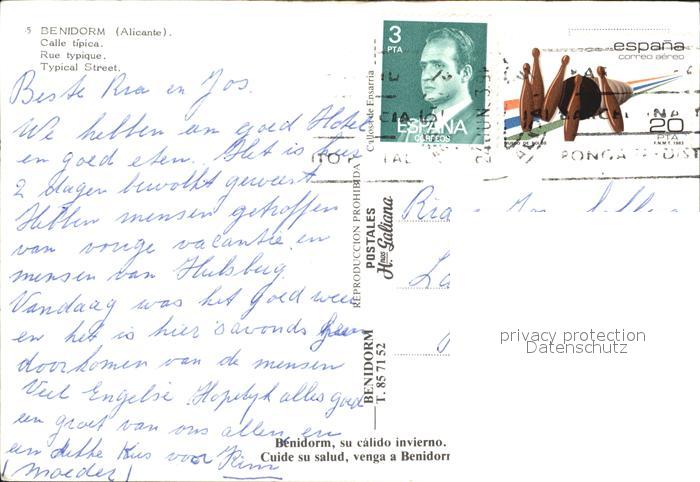 5 BENIDORM (Alicante).
Calle típica.
Rue typique.
Typical Street.
Beste Ria en Jos.
We hebben een goed Hotel
en goed eten. Het is hier
2 dagen bewolkt geweest
Hebben mensen getroffen
van vorige vacantie en
mensen van Hulsberg
Vandaag was het goed weer
en het is hier 's avonds geen
doorkomen van de mensen
Veel Engelse Hopelijk alles goed
een groet van ons allen, en
een dikke Kus voor Kim
(Moeder)
REPRODUCCION PROHIBIDA
Callosa de Ensarria
POSTALES
Hnos Galiana
BENIDORM
T. 85 71 52
Benidorm, su cálido invierno.
Cuide su salud, venga a Benidorm
3
PTA
ESPAÑA
CORREOS
españa
correo aéreo
20
PTA
F.N.M.T. 1983
Ria Jos
La
privacy protection
Datenschutz